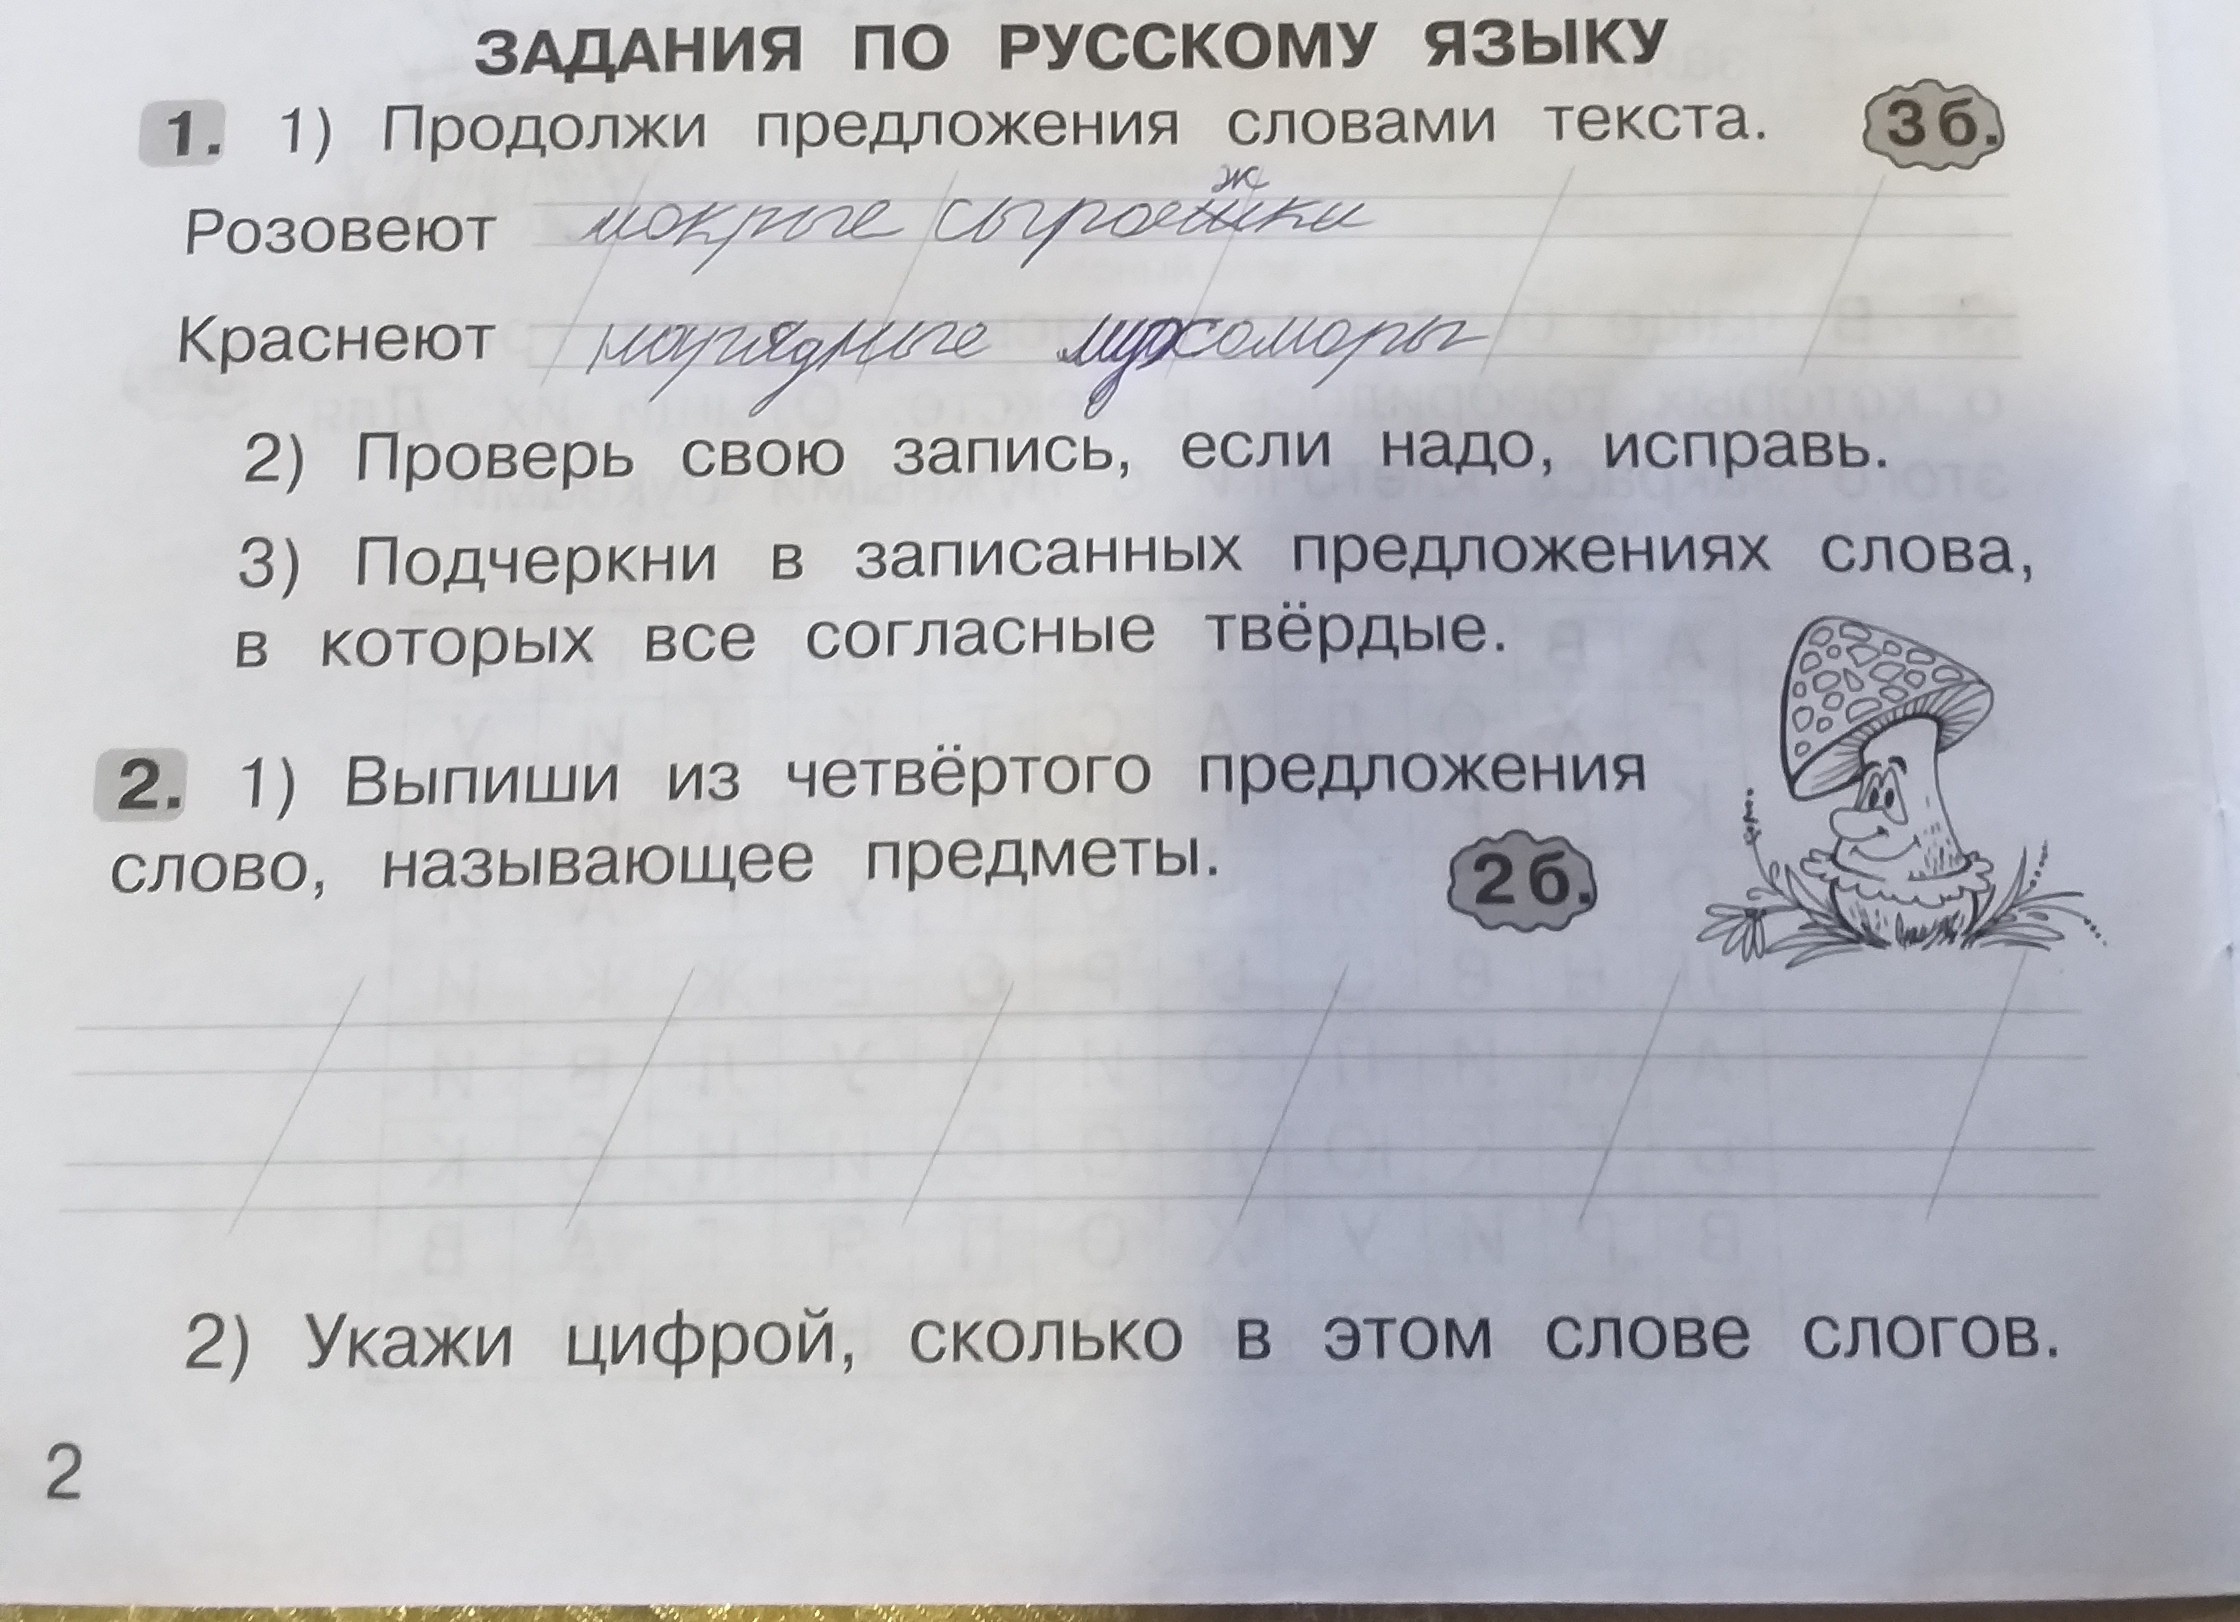 ЗАДАНИЯ ПО РУССКОМУ ЯЗЫКУ
1. 1) Продолжи предложения словами текста. 3 б.
ж
Розовеют мокрые сыроежки
Краснеют нарядные мухоморы
2) Проверь свою запись, если надо, исправь.
3) Подчеркни в записанных предложениях слова,
в которых все согласные твёрдые.
2. 1) Выпиши из четвёртого предложения
слово, называющее предметы. 2 б.
2) Укажи цифрой, сколько в этом слове слогов.
2